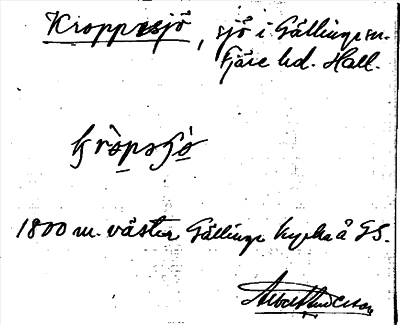 Kroppsjö, sjö i Gällinge sn.
Fjäre hd. Hall.
kròpsó
1800 m. väster Gällinge kyrka å GS.
Albert Anderson